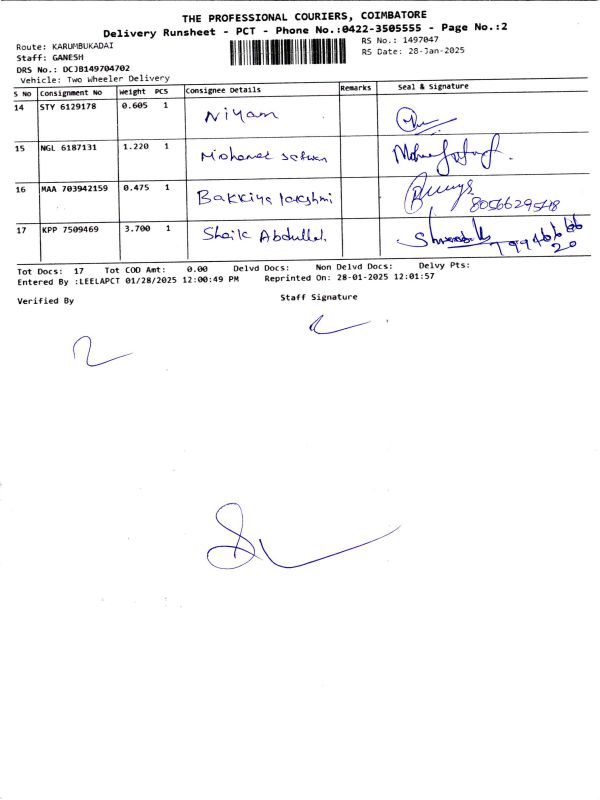 THE PROFESSIONAL COURIERS, COIMBATORE
Delivery Runsheet - PCT - Phone No.:0422-3505555 - Page No.:2
Route: KARUMBUKADAI
RS No.: 1497047
Staff: GANESH
RS Date: 28-Jan-2025
DRS No.: DCJB149704702
Vehicle: Two Wheeler Delivery
S No Consignment No Weight PCS Consignee Details Remarks Seal & Signature
14 STY 6129178 0.605 1 Niyam
15 NGL 6187131 1.220 1 Mohamed
16 MAA 703942159 0.475 1 Bakkiya lakshmi
8056629548
17 KPP 7509469 3.700 1 Shaik Abdullah
Tot Docs: 17 Tot COD Amt: 0.00 Delvd Docs: Non Delvd Docs: Delvy Pts:
Entered By :LEELAPCT 01/28/2025 12:00:49 PM Reprinted On: 28-01-2025 12:01:57
Verified By Staff Signature